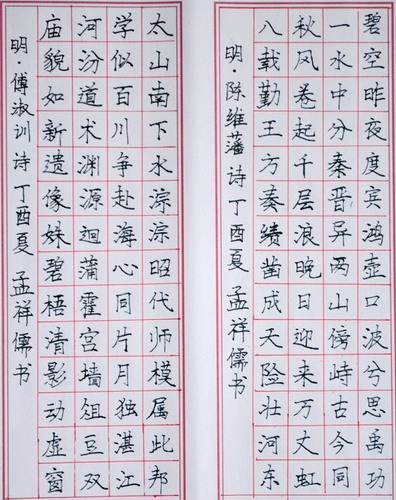 碧空昨夜度宾鸿壶口波兮思禹功
一水中分秦晋异两山傍峙古今同
秋风卷起千层浪晚日迎来万丈虹
八载勤王方奏绩凿成天险壮河东
明·陈维藩诗 丁酉夏 孟祥儒书
太山南下水淙淙昭代师模属此邦
学似百川争赴海心同片月独湛江
河汾道术渊源迴蒲霍宫墙俎豆双
庙貌如新遗像姝碧梧清影动虚窗
明·傅淑训诗 丁酉夏 孟祥儒书